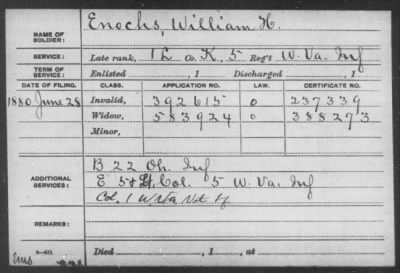 NAME OF SOLDIER: Enochs, William H.
SERVICE: Late rank, 1 L Co. K, 5 Reg't W. Va. Inf
TERM OF SERVICE: Enlisted , 1 Discharged , 1
DATE OF FILING. CLASS. APPLICATION NO. LAW. CERTIFICATE NO.
1880 June 28 Invalid, 392615 O 237339
Widow, 583924 O 388273
Minor,
ADDITIONAL SERVICES: B 22 Oh. Inf
E 5 & Lt. Col. 5 W. Va. Inf
Col. 1 W. Va Vet Inf
REMARKS:
Died , 1 , at